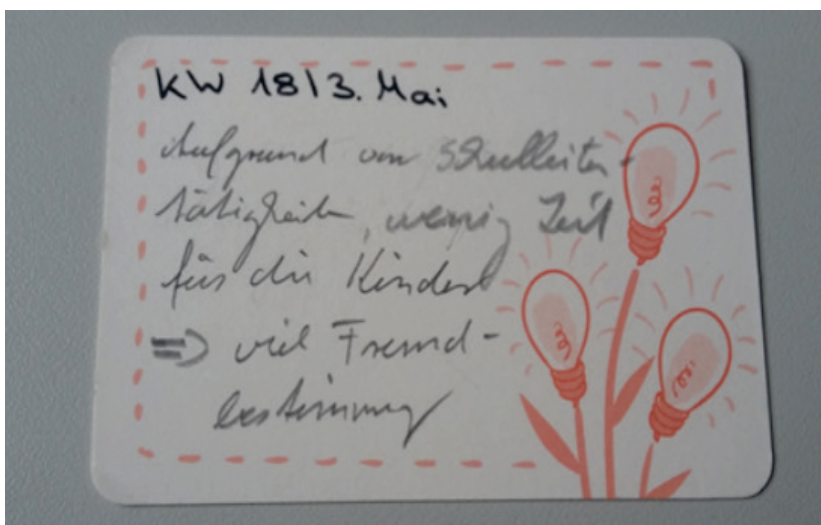 KW 18/3. Mai
Aufgrund von Schulleiter-
tätigkeit, wenig Zeit
für die Kinder!
⇒ viel Fremd-
bestimmung